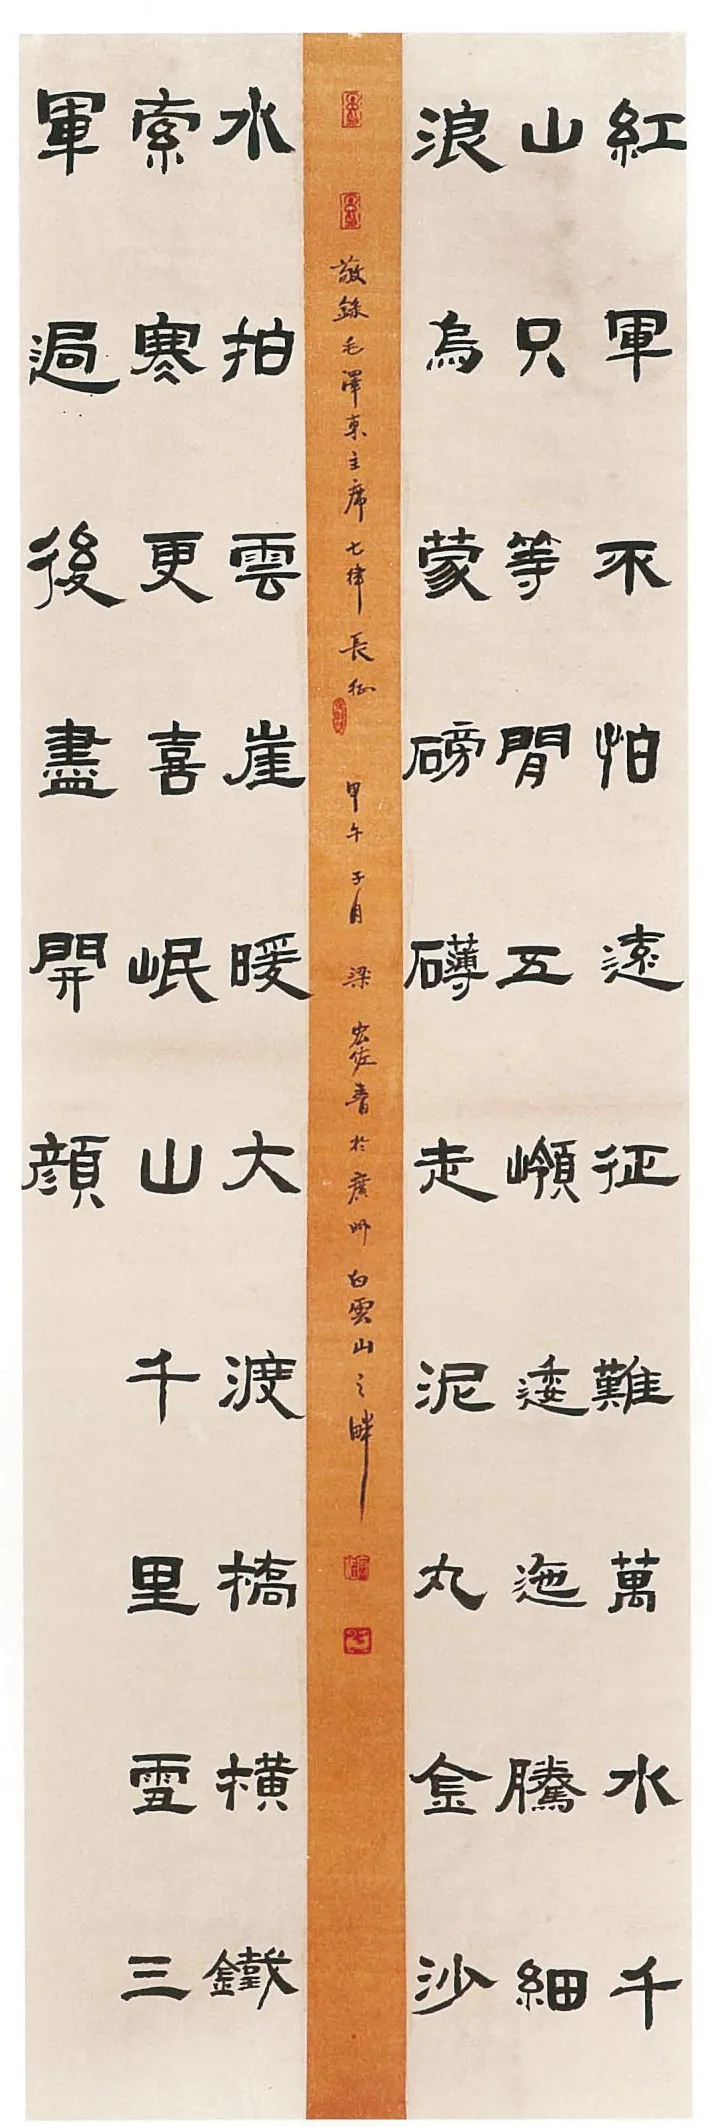 紅軍不怕遠征難萬水千
山只等閒五嶺逶迤騰細
浪烏蒙磅礴走泥丸金沙
敬錄毛澤東主席七律長征 甲午子月 梁宏佐書於廣州白雲山之畔
水拍雲崖暖大渡橋橫鐵
索寒更喜岷山千里雪三
軍過後盡開顏